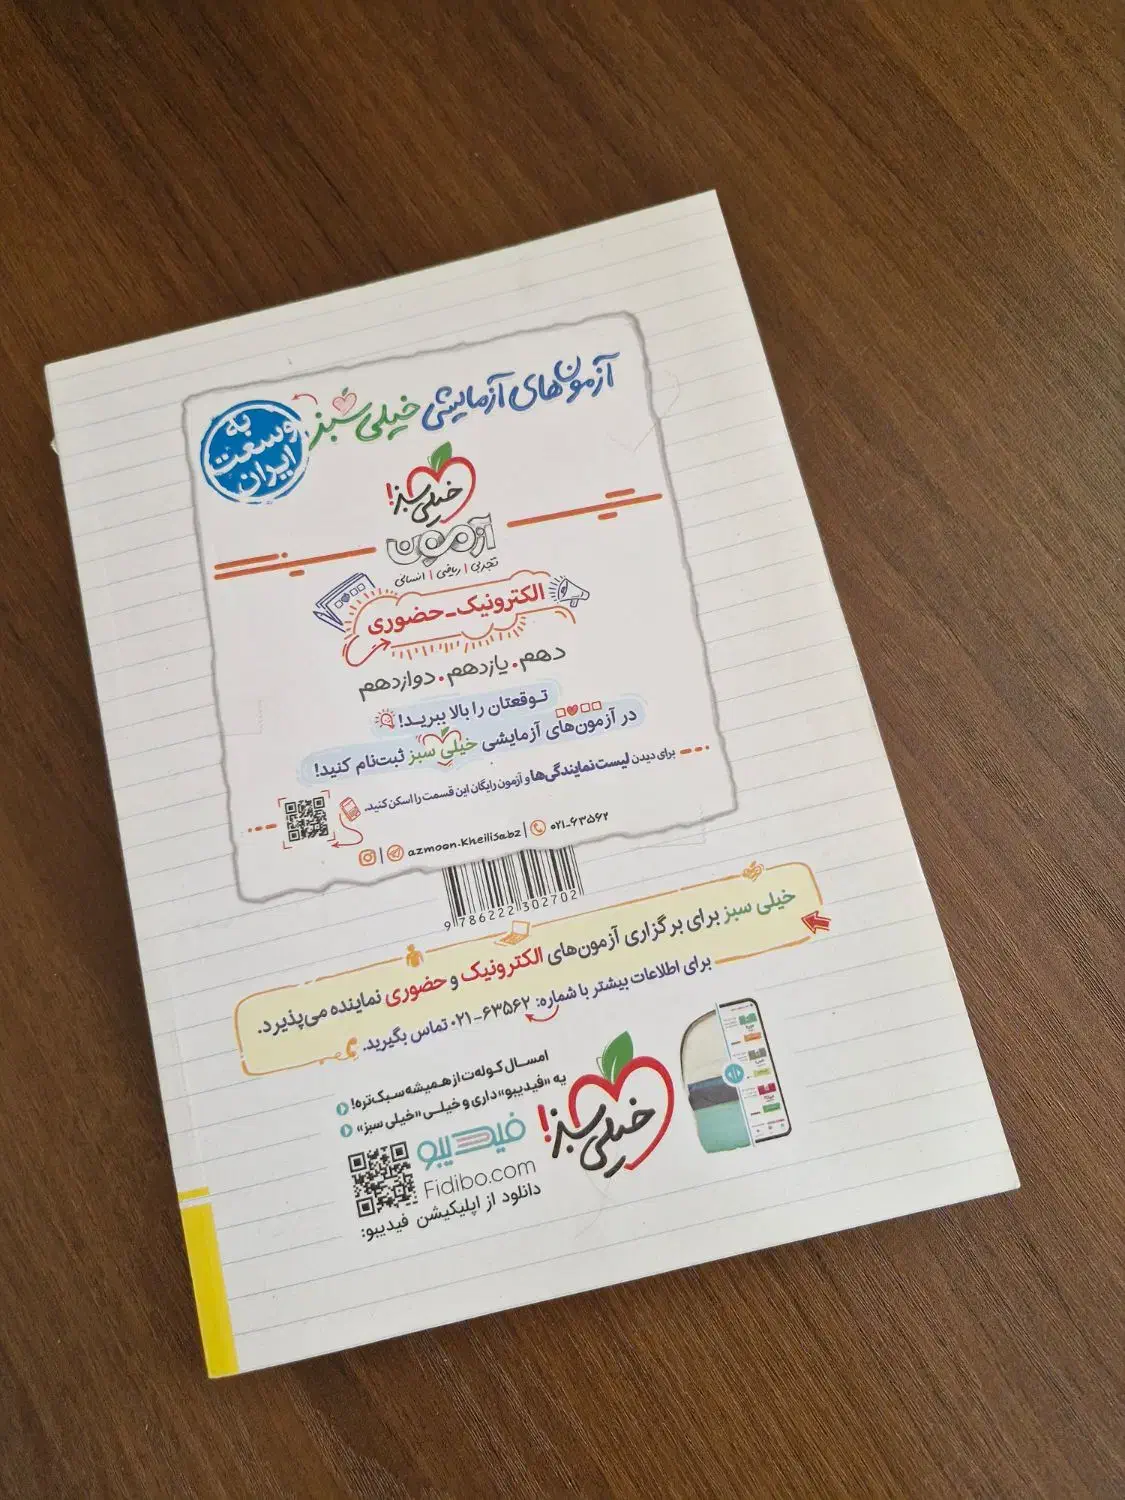 آزمون‌های آزمایشی خیلی سبز
به
وسعت
ایران
خیلی سبز!
آزمون
تجربی | ریاضی | انسانی
الکترونیک - حضوری
دهم . یازدهم . دوازدهم
توقعتان را بالا ببرید!
در آزمون‌های آزمایشی خیلی سبز ثبت‌نام کنید!
برای دیدن لیست نمایندگی‌ها و آزمون رایگان این قسمت را اسکن کنید.
azmoon.kheilisabz | ۰۲۱-۶۳۵۶۲
9 786222 302702
خیلی سبز برای برگزاری آزمون‌های الکترونیک و حضوری نماینده می‌پذیرد.
برای اطلاعات بیشتر با شماره: ۶۳۵۶۲-۰۲۱ تماس بگیرید.
امسال کوله‌ت از همیشه سبک‌تره!
یه «فیدیبو» داری و خیلی «خیلی سبز»
خیلی سبز!
فیدیبو
Fidibo.com
دانلود از اپلیکیشن فیدیبو: